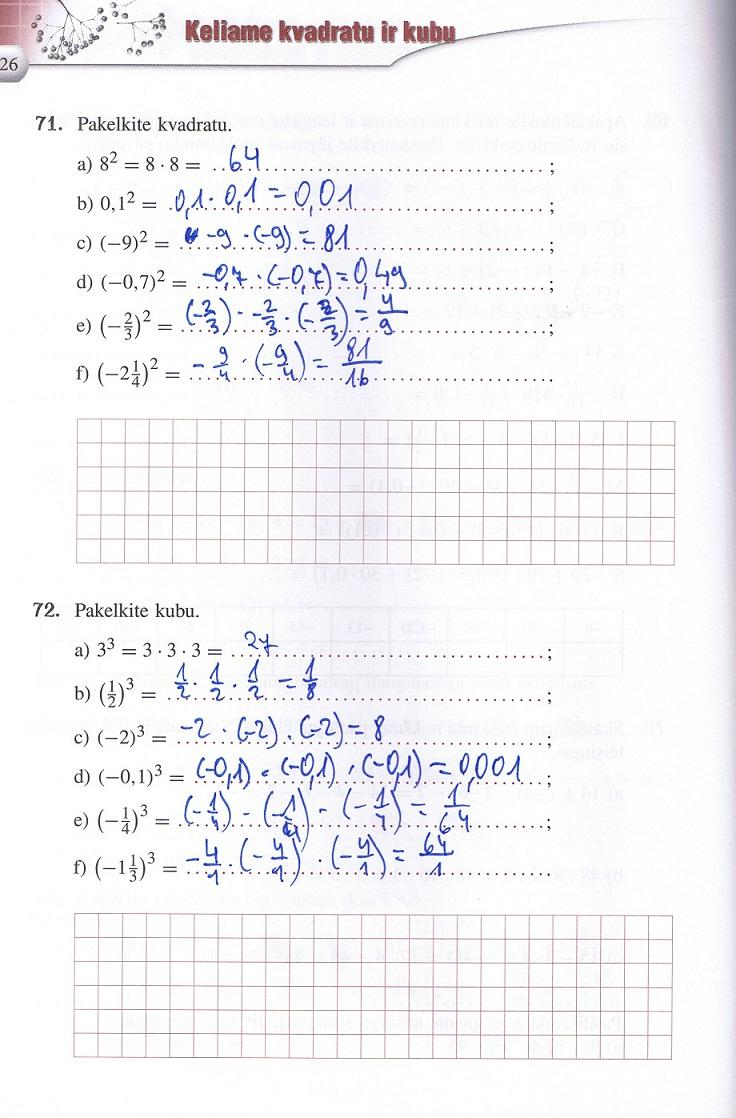 26
Keliame kvadratu ir kubu
71. Pakelkite kvadratu.
a) 8² = 8 · 8 = 64 ;
b) 0,1² = 0,1 · 0,1 = 0,01 ;
c) (−9)² = −9 · (−9) = 81 ;
d) (−0,7)² = −0,7 · (−0,7) = 0,49 ;
e) (−2/3)² = (−2/3) · −2/3 · (−2/3) = 4/9 ;
f) (−2 1/4)² = −9/4 · (−9/4) = 81/16
72. Pakelkite kubu.
a) 3³ = 3 · 3 · 3 = 27 ;
b) (1/2)³ = 1/2 · 1/2 · 1/2 = 1/8 ;
c) (−2)³ = −2 · (−2) · (−2) = 8 ;
d) (−0,1)³ = (−0,1) · (−0,1) · (−0,1) = 0,001 ;
e) (−1/4)³ = (−1/4) · (−1/4) · (−1/4) = 1/64 ;
f) (−1 1/3)³ = −4/1 · (−4/1) · (−4/1) = 64/1